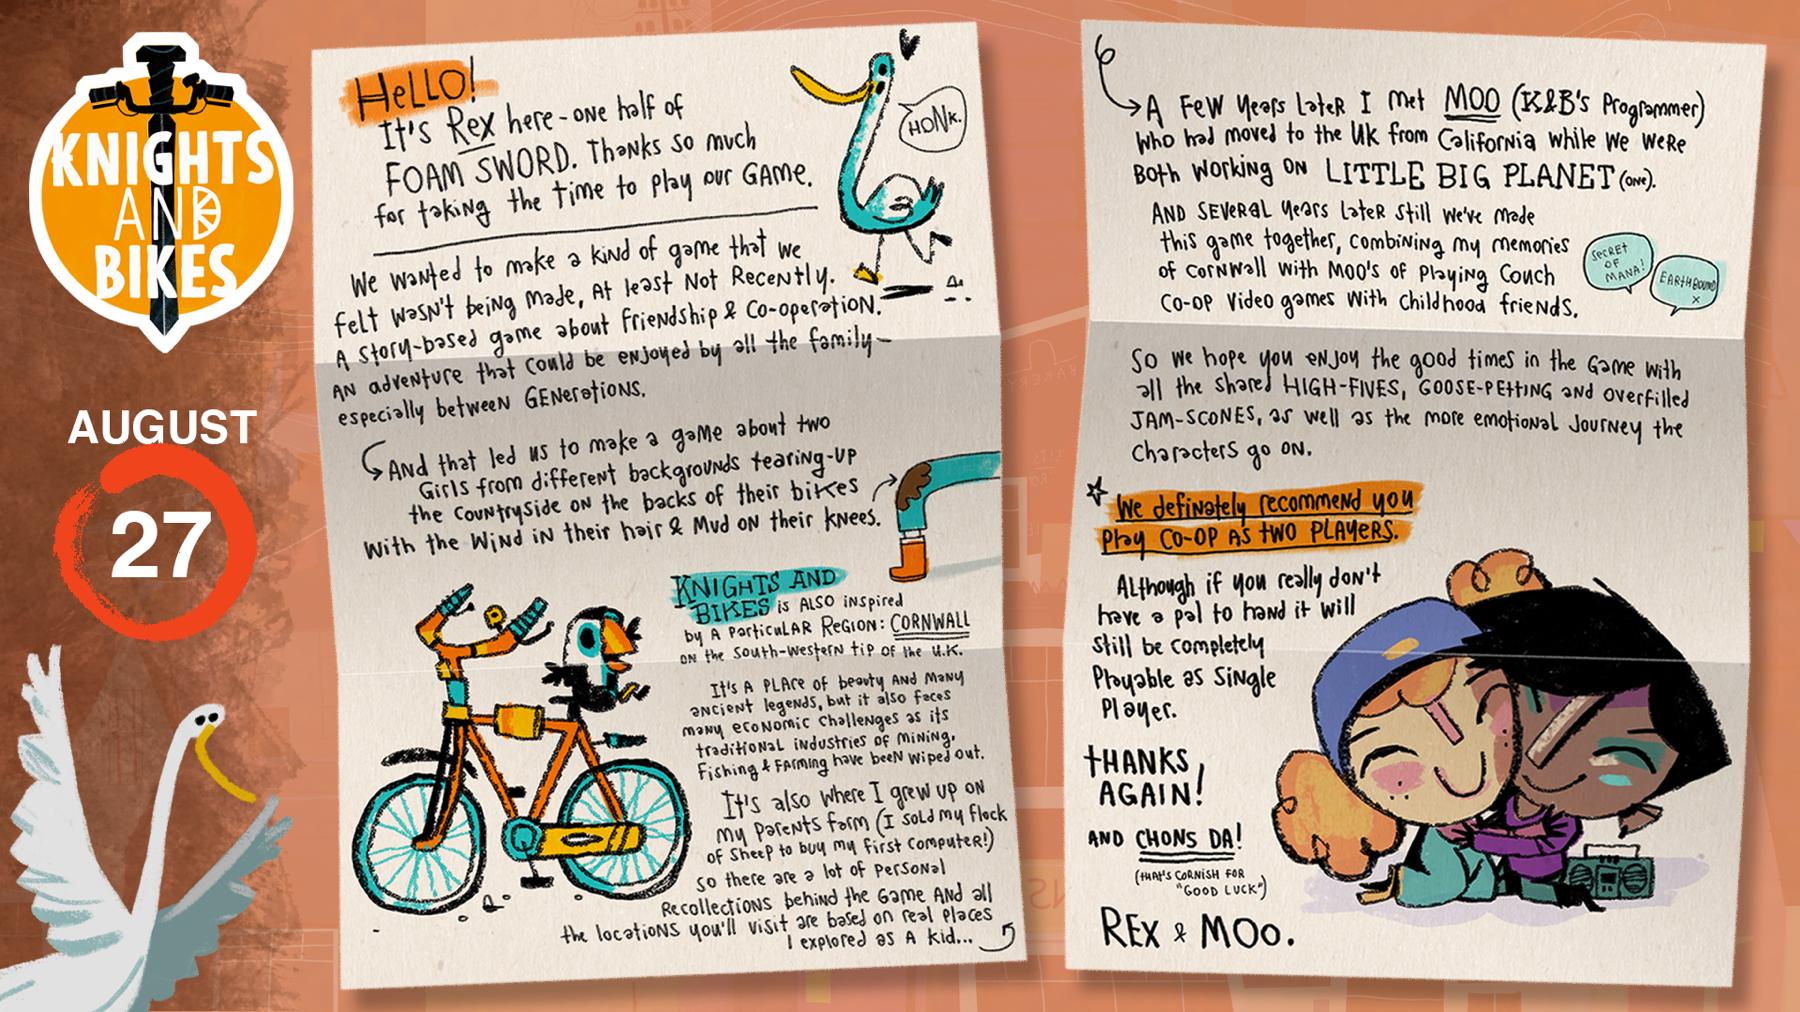 KNIGHTS
AND
BIKES
AUGUST
27
HELLO!
It's Rex here - one half of
FOAM SWORD. Thanks so much
for taking the time to play our GAME.
HONK.
We wanted to make a kind of game that we
felt wasn't being made, at least Not Recently.
A story-based game about friendship & Co-operation.
AN adventure that could be enjoyed by all the family -
especially between GENerations.
And that led us to make a game about two
Girls from different backgrounds tearing-up
the countryside on the backs of their bikes
with the Wind iN their hair & Mud on their knees.
KNIGHTS AND
BIKES is ALSO inspired
by A ParticuLAR REGION: CORNWALL
on the South-Western tip of the U.K.
It's A PLAce of beauty AND MANy
ancient legends, but it also faces
many economic challenges as its
traditional industries of mining,
Fishing & Farming have been wiped out.
It's also where I grew up on
my parents farm (I sold my flock
of Sheep to buy my first computer!)
So there are a lot of personal
Recollections behind the Game And all
the locations you'll visit are based on real places
I explored as A kid...
A FEW years later I met MOO (K&B's Programmer)
who had moved to the UK from California while we were
Both working on LITTLE BIG PLANET (one).
AND SEVERal years later still we've made
this game together, combining my memories
of cornwall with Moo's of playing Couch
Co-op video games with childhood friends.
SECRET
OF
MANA!
EARTHBOUND
x
So we hope you enjoy the good times in the Game with
all the shared HIGH-FIVES, GOOSE-PETTING and overfilled
JAM-SCONES, as well as the more emotional Journey the
Characters go on.
We definately recommend you
Play CO-OP AS TWO PLAYERS.
Although if you really don't
have a pal to hand it will
still be completely
Playable as Single
Player.
THANKS
AGAIN!
AND CHONS DA!
(THAT'S CORNISH FOR
"GOOD LUCK")
REX & MOO.